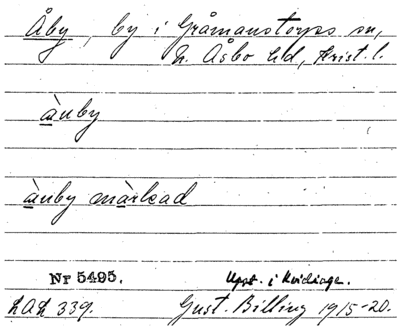 Åby, by i Gråmanstorps sn,
N. Åsbo hd, Krist. l.
ànby
ànby màrkad
Nr 5495.
Uppt. i Kvidinge.
LAL 339.
Gust. Billing 1915-20.